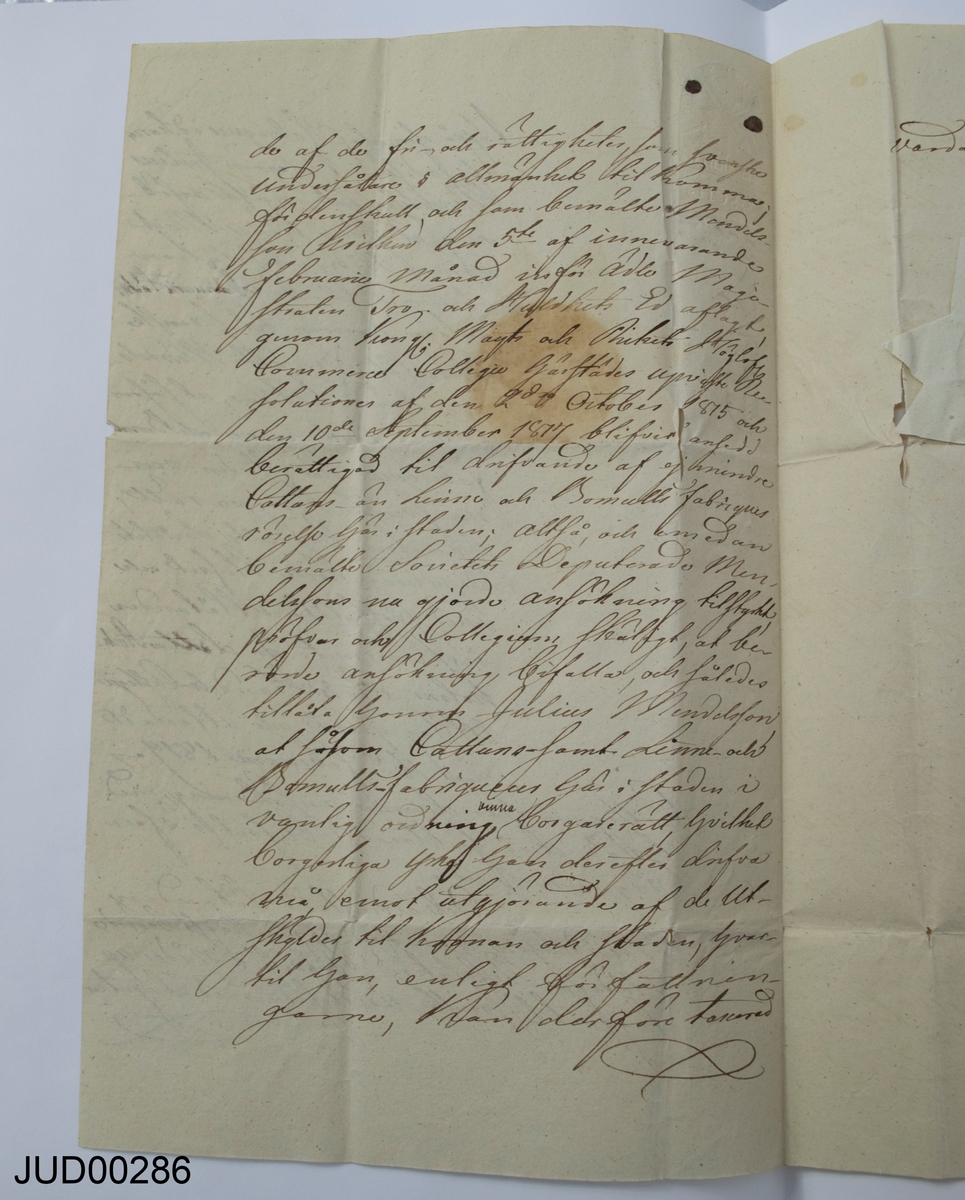 de af de fri- och rättigheter, som svenske
undersåtare i allmänhet til komma;
för denskull, och som bemälte Mendels-
son hvilken den 5te af innevarande
Februarii Månad inför Ädle Magi-
straten Tro- och Huldhets Ed aflagt
genom Kongl. Mayts och Rikets Höglofl.
Commerce Collegii härstädes Re-
solutioner af den October 1815 och
den 10de September 1817 blifvit ansedd
berättigad til drifvande af ej mindre
Cattuns- än Linne och Bomulls fabriques
rörelse här i staden; altså, och emedan
bemälte Societets Deputerade Men-
delssons nu gjorde ansökning tilstyrkt,
pröfvar och Collegium skäligt, at be-
rörde ansökning bifalla, och således
tillåta honom Julius Mendelsson
at såsom Cattuns- samt Linne- och
Bomulls-fabriqueur här i staden i
vanlig ordning vinna Borgarerätt hvilket
borgerliga yrke han derefter drifva
må, emot utgjörande af de Ut-
skylder til Kronan och staden, hvar-
til han, enligt författnin-
garne, kan derföre taxerad
varda
JUD00286